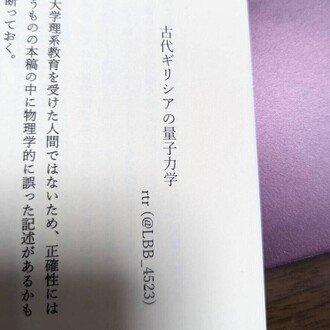 古代ギリシアの量子力学
rtr (@LBB_4523)
大学理系教育を受けた人間ではないため、正確性には
うものの本稿の中に物理学的に誤った記述があるかも
断っておく。